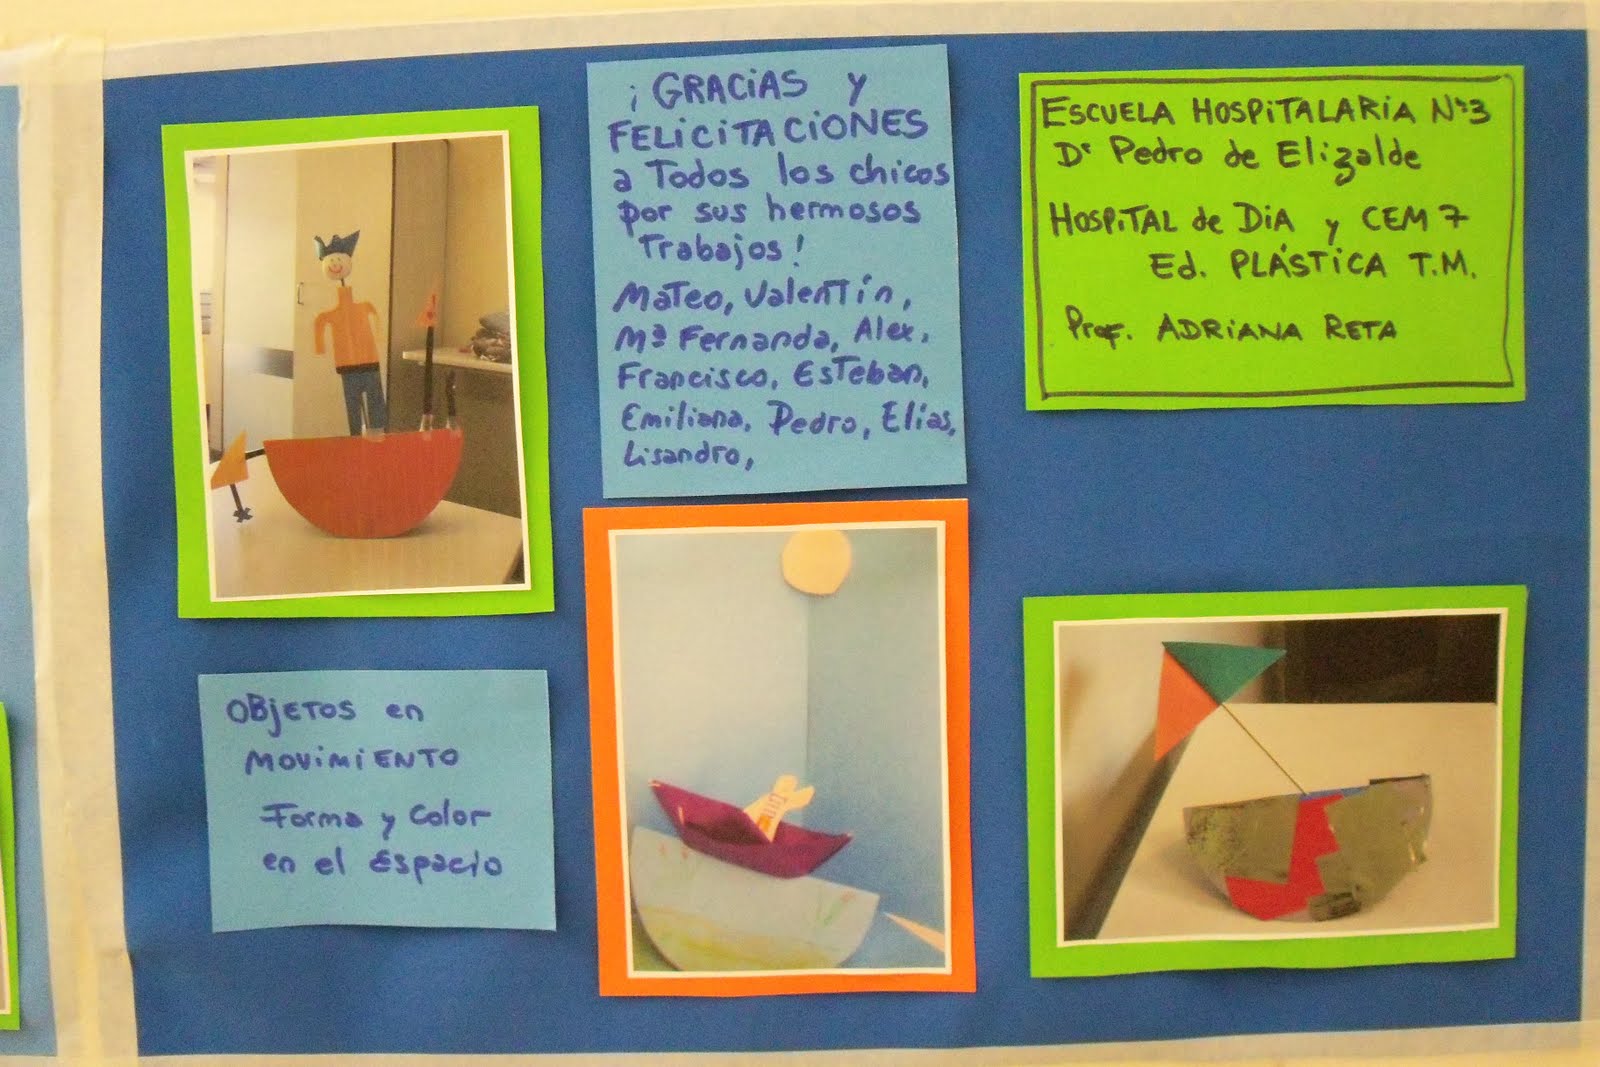 ¡GRACIAS y
FELICITACIONES
a Todos los chicos
por sus hermosos
Trabajos!
Mateo, Valentín,
Mª Fernanda, Alex,
Francisco, Esteban,
Emiliana, Pedro, Elías,
Lisandro,
ESCUELA HOSPITALARIA Nº3
Dr Pedro de Elizalde
HOSPITAL de DIA y CEM 7
Ed. PLÁSTICA T.M.
Prof. ADRIANA RETA
OBJETOS en
MOVIMIENTO
Forma y Color
en el Espacio